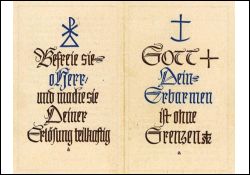 Befreie sie
o Herr
und mache sie
Deiner
Erlösung teilhaftig
GOTT
Dein
Erbarmen
ist ohne
Grenzen